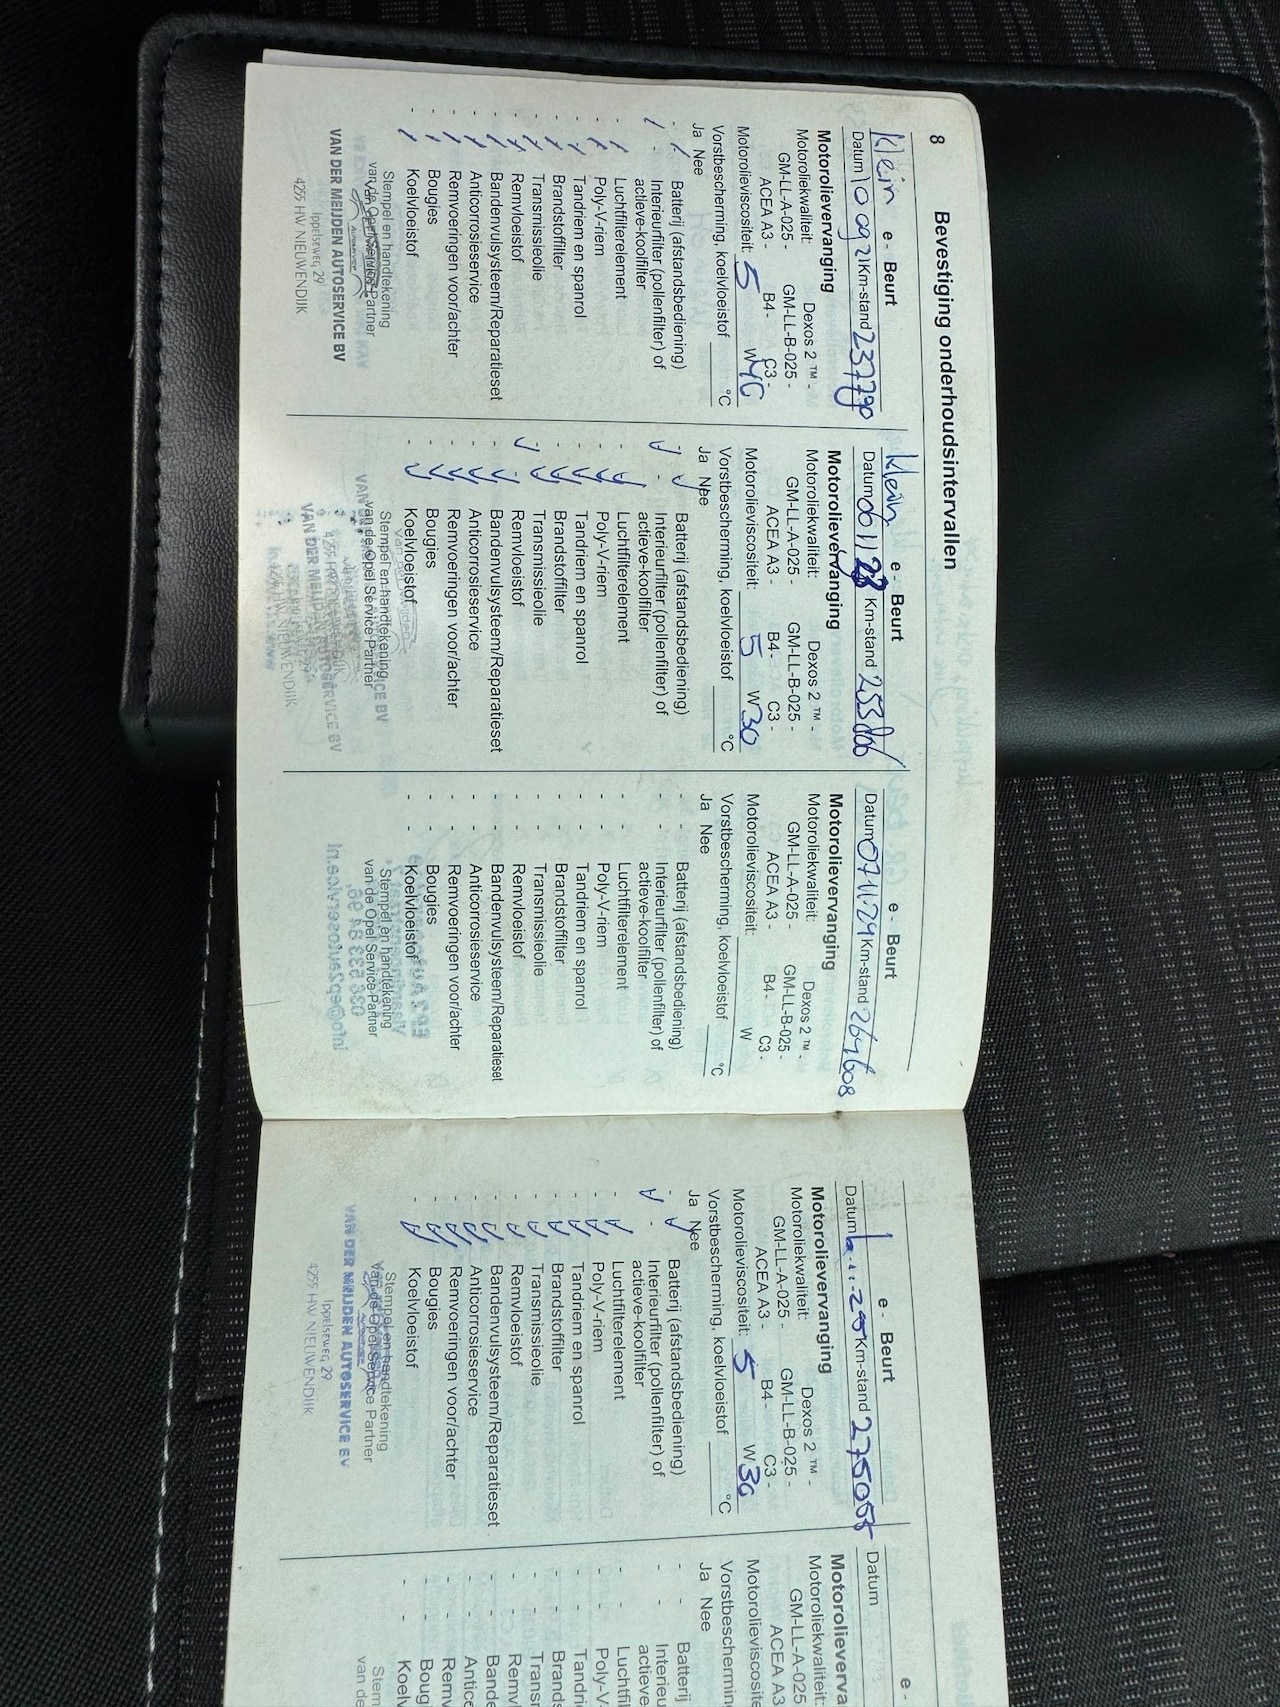 8 Bevestiging onderhoudsintervallen
Klein e - Beurt
Datum 10 09 21 Km-stand 237790
Motorolievervanging
Motoroliekwaliteit: Dexos 2 ™ -
GM-LL-A-025 - GM-LL-B-025 -
ACEA A3 - B4 - C3 -
Motorolieviscositeit: 5 W40
Vorstbescherming, koelvloeistof °C
Ja Nee
Batterij (afstandsbediening)
Interieurfilter (pollenfilter) of
actieve-koolfilter
Luchtfilterelement
Poly-V-riem
Tandriem en spanrol
Brandstoffilter
Transmissieolie
Remvloeistof
Bandenvulsysteem/Reparatieset
Anticorrosieservice
Remvoeringen voor/achter
Bougies
Koelvloeistof
Stempel en handtekening
van de Opel Service Partner
VAN DER MEIJDEN AUTOSERVICE BV
Ippelseweg 29
4255 HW NIEUWENDIJK
Klein e - Beurt
Datum Km-stand
Motorolievervanging
Motoroliekwaliteit: Dexos 2 ™ -
GM-LL-A-025 - GM-LL-B-025 -
ACEA A3 - B4 - C3 -
Motorolieviscositeit: 5 W30
Vorstbescherming, koelvloeistof °C
Ja Nee
Batterij (afstandsbediening)
Interieurfilter (pollenfilter) of
actieve-koolfilter
Luchtfilterelement
Poly-V-riem
Tandriem en spanrol
Brandstoffilter
Transmissieolie
Remvloeistof
Bandenvulsysteem/Reparatieset
Anticorrosieservice
Remvoeringen voor/achter
Bougies
Koelvloeistof
Stempel en handtekening
van de Opel Service Partner
VAN DER MEIJDEN AUTOSERVICE BV
4255 HW NIEUWENDIJK
e - Beurt
Datum 07.11.24 Km-stand 264608
Motorolievervanging
Motoroliekwaliteit: Dexos 2 ™ -
GM-LL-A-025 - GM-LL-B-025 -
ACEA A3 - B4 - C3 -
Motorolieviscositeit: W
Vorstbescherming, koelvloeistof °C
Ja Nee
Batterij (afstandsbediening)
Interieurfilter (pollenfilter) of
actieve-koolfilter
Luchtfilterelement
Poly-V-riem
Tandriem en spanrol
Brandstoffilter
Transmissieolie
Remvloeistof
Bandenvulsysteem/Reparatieset
Anticorrosieservice
Remvoeringen voor/achter
Bougies
Koelvloeistof
Stempel en handtekening
van de Opel Service Partner
e - Beurt
Datum Km-stand 275055
Motorolievervanging
Motoroliekwaliteit: Dexos 2 ™ -
GM-LL-A-025 - GM-LL-B-025 -
ACEA A3 - B4 - C3 -
Motorolieviscositeit: 5 W30
Vorstbescherming, koelvloeistof °C
Ja Nee
Batterij (afstandsbediening)
Interieurfilter (pollenfilter) of
actieve-koolfilter
Luchtfilterelement
Poly-V-riem
Tandriem en spanrol
Brandstoffilter
Transmissieolie
Remvloeistof
Bandenvulsysteem/Reparatieset
Anticorrosieservice
Remvoeringen voor/achter
Bougies
Koelvloeistof
Stempel en handtekening
van de Opel Service Partner
VAN DER MEIJDEN AUTOSERVICE BV
Ippelseweg 29
4255 HW NIEUWENDIJK
e -
Datum
Motorolieverva
Motoroliekwaliteit:
GM-LL-A-025
ACEA A3
Motorolieviscosite
Vorstbeschermin
Ja Nee
Batterij
Interieu
actieve-
Luchtfil
Poly-V-
Tandri
Brands
Transr
Remvl
Bande
Antico
Remv
Boug
Koelv
Stem
van de